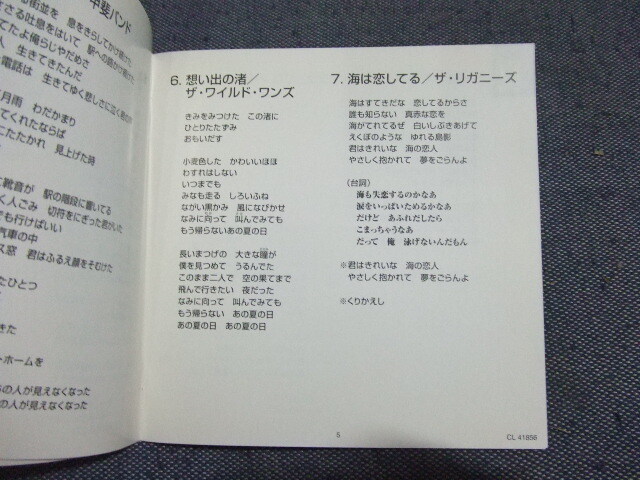 甲斐バンド
街並を 息をきらしてかけ
吐息をはいて 駅への
てたよ俺らじゃだめさ
人 生きてきたんだ
電話は 生きてゆく悲しさに
月雨 わだかまり
てくれたならば
たたかれ 見上げた時
靴音が 駅の階段に響いてる
く人ごみ 切符をにぎった君がいた
でも行けばいい
汽車の中
ス窓 君はふるえ顔をそむけた
たひとつ
きた
・ホームを
の人が見えなくなった
の人が見えなくなった
6. 想い出の渚／
ザ・ワイルド・ワンズ
きみをみつけた この渚に
ひとりたたずみ
おもいだす
小麦色した かわいいほほ
わすれはしない
いつまでも
みなも走る しろいふね
ながい黒かみ 風になびかせ
なみに向って 叫んでみても
もう帰らないあの夏の日
長いまつげの 大きな瞳が
僕を見つめて うるんでた
このまま二人で 空の果てまで
飛んで行きたい 夜だった
なみに向って 叫んでみても
もう帰らない あの夏の日
あの夏の日 あの夏の日
7. 海は恋してる／ザ・リガニーズ
海はすてきだな 恋してるからさ
誰も知らない 真赤な恋を
海がてれてるぜ 白いしぶきあげて
えくぼのような ゆれる島影
君はきれいな 海の恋人
やさしく抱かれて 夢をごらんよ
（台詞）
海も失恋するのかなあ
涙をいっぱいためるかなあ
だけど あふれだしたら
こまっちゃうなあ
だって 俺 泳げないんだもん
※君はきれいな 海の恋人
やさしく抱かれて 夢をごらんよ
※くりかえし
5
CL 41856